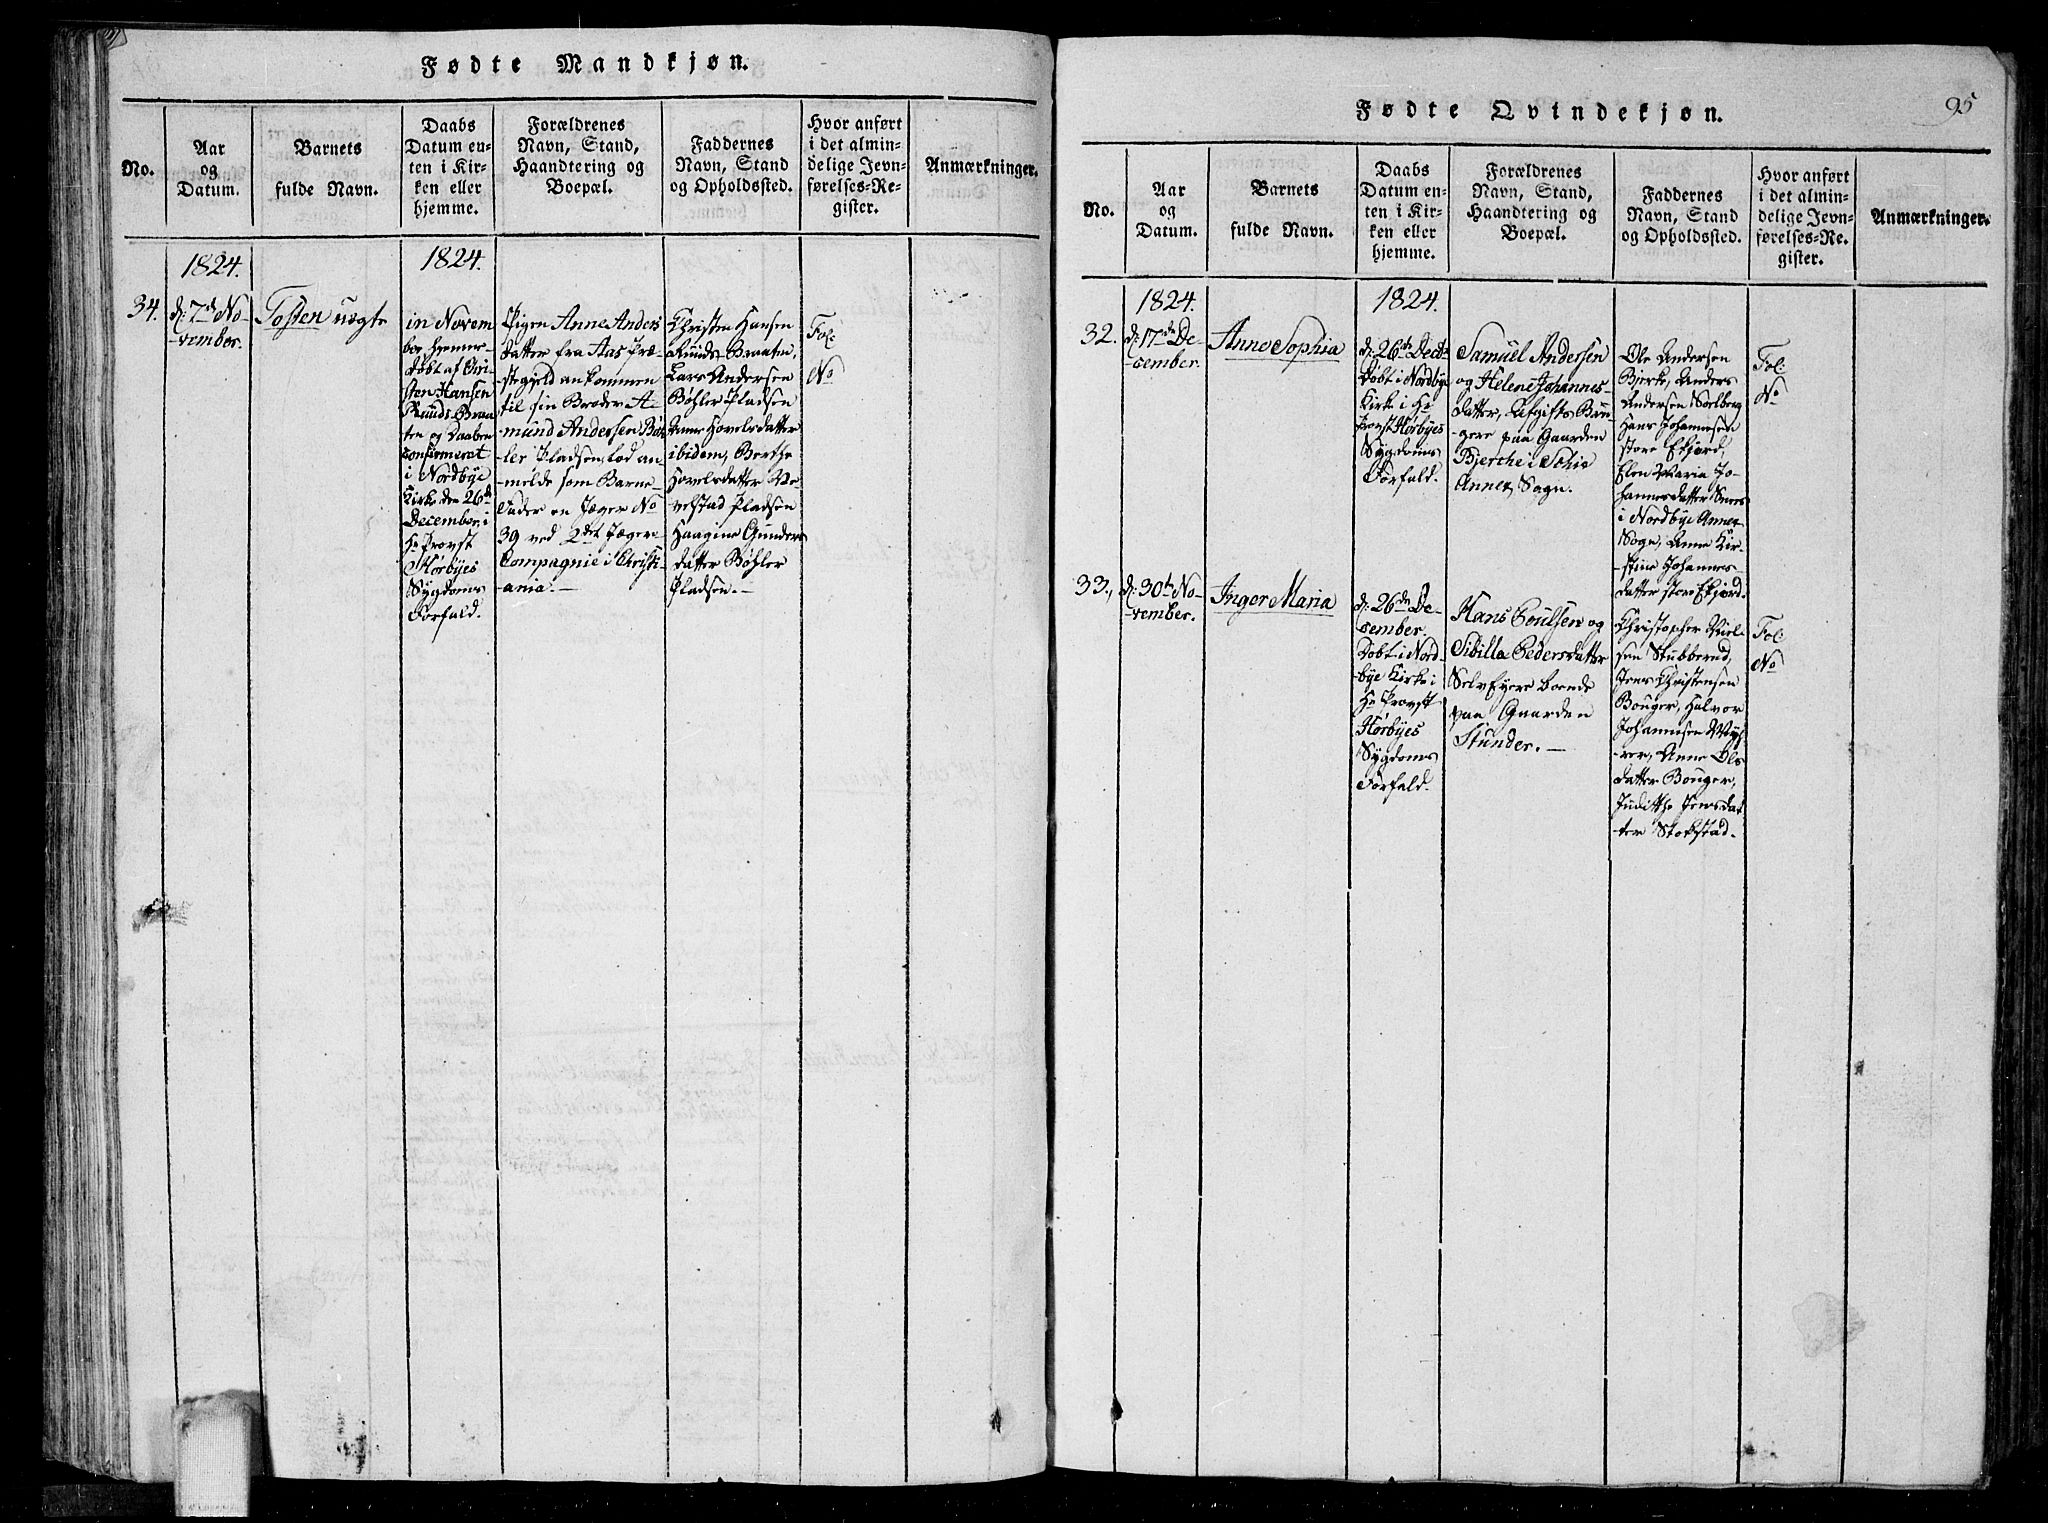 Fødte Mandkjøn.
No.
Aar
og
Datum.
Barnets
fulde Navn.
Daabs
Datum en-
ten i Kir-
ken eller
hjemme.
Forældrenes
Navn, Stand,
Haandtering og
Boepæl.
Faddernes
Navn, Stand
og Opholdssted.
Hvor anført
i det almin-
delige Jevn-
førelses-Re-
gister.
Anmærkninger.
1824.
1824.
34.
d: 7de No-
vember.
Tosten uægte
in Novem
ber hjemme-
døbt af Chri-
sten Hansen
Ruuds Braa
ten og Daaben
confirmeret
i Nordbye
Kirke den 26de
December, i
Hr Provst
Hørbyes
Sygdoms
Forfald.
Pigen Anne Anders
datter fra Aas Præ-
stegjeld ankommen
til sin Broder A-
mund Andersen Bøh
ler Pladsen, lod an-
melde som Barne
Fader en Jæger No
39 ved 2det Jæger-
Compagnie i Christi-
ania.-
Christen Hansen
Ruuds Braaten,
Lars Andersen
Bøhler Pladsen
Anne Hovelsdatter
ibidem, Berthe
Hovelsdatter
Pladsen
Haagine Gunders
datter Bøhler
Pladsen.-
Fol:
No
Fødte Qvindekjøn.
95
No.
Aar
og
Datum.
Barnets
fulde Navn.
Daabs
Datum en-
ten i Kir-
ken eller
hjemme.
Forældrenes
Navn, Stand,
Haandtering og
Boepæl.
Faddernes
Navn, Stand
og Opholdssted.
Hvor anført
i det almin-
delige Jevn-
førelses-Re-
gister.
Anmærkninger.
1824.
1824.
32.
d: 17de De-
cember.
Anne Sophia
d: 26de Decbr
Døbt i Nordbye
Kirke i Hr
Provst Hørbyes
Sygdoms
Forfald.
Samuel Andersen
og Helene Johannes
datter, Afgifts Bru
gere paa Gaarden
Bjerche i Schie
Annex Sogn.
Ole Andersen
Bjerke, Anders
Andersen Solberg
Hans Johannesen
store Ekjord,
Elen Maria Jo-
hannesdatter
i Nordbye Annex
Sogn, Anne Kir-
stine Johannes
datter store Ekjord.
Fol:
No
33.
d: 30te No-
vember.
Inger Maria
d: 26de De-
cember.
Døbt i Nord-
bye Kirke i
Hr Provst
Hørbyes
Sygdoms
Forfald.
Hans Poulsen og
Sibilla Pedersdatter
Selv Eyere boende
paa Gaarden
Stunder.-
Christopher Niel-
sen Stubberud,
Jens Christensen
Bouger, Halvor
Johannesen
Anne Ols
datter Bouger,
Judithe Jensdat
ter Stokstad.
Fol:
No